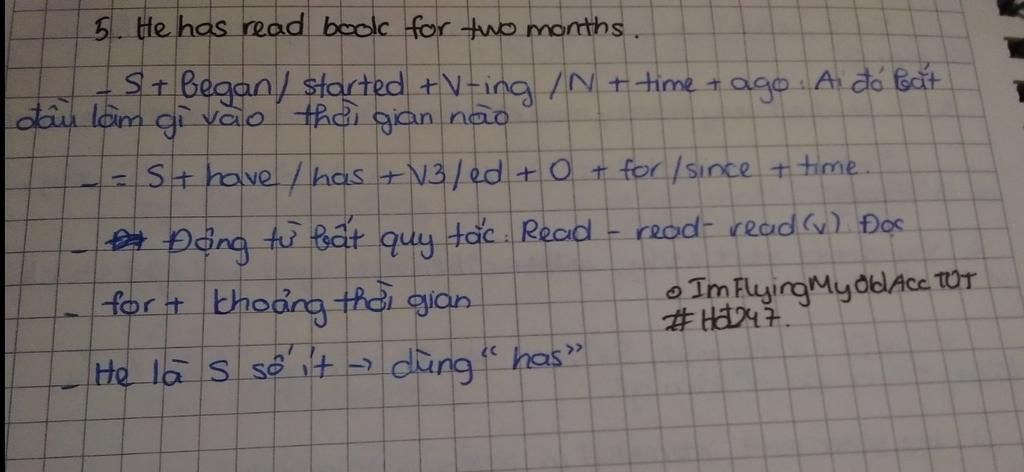 5. He has read book for two months.
- S + Began / started + V-ing / N + time + ago : Ai đó bắt
đầu làm gì vào thời gian nào
- = S + have / has + V3/ed + O + for / since + time.
- Động từ bất quy tắc : Read - read - read (v) Đọc
- for + khoảng thời gian
o ImFlyingMyOldAcc TOT
- He là S số ít → dùng “has”